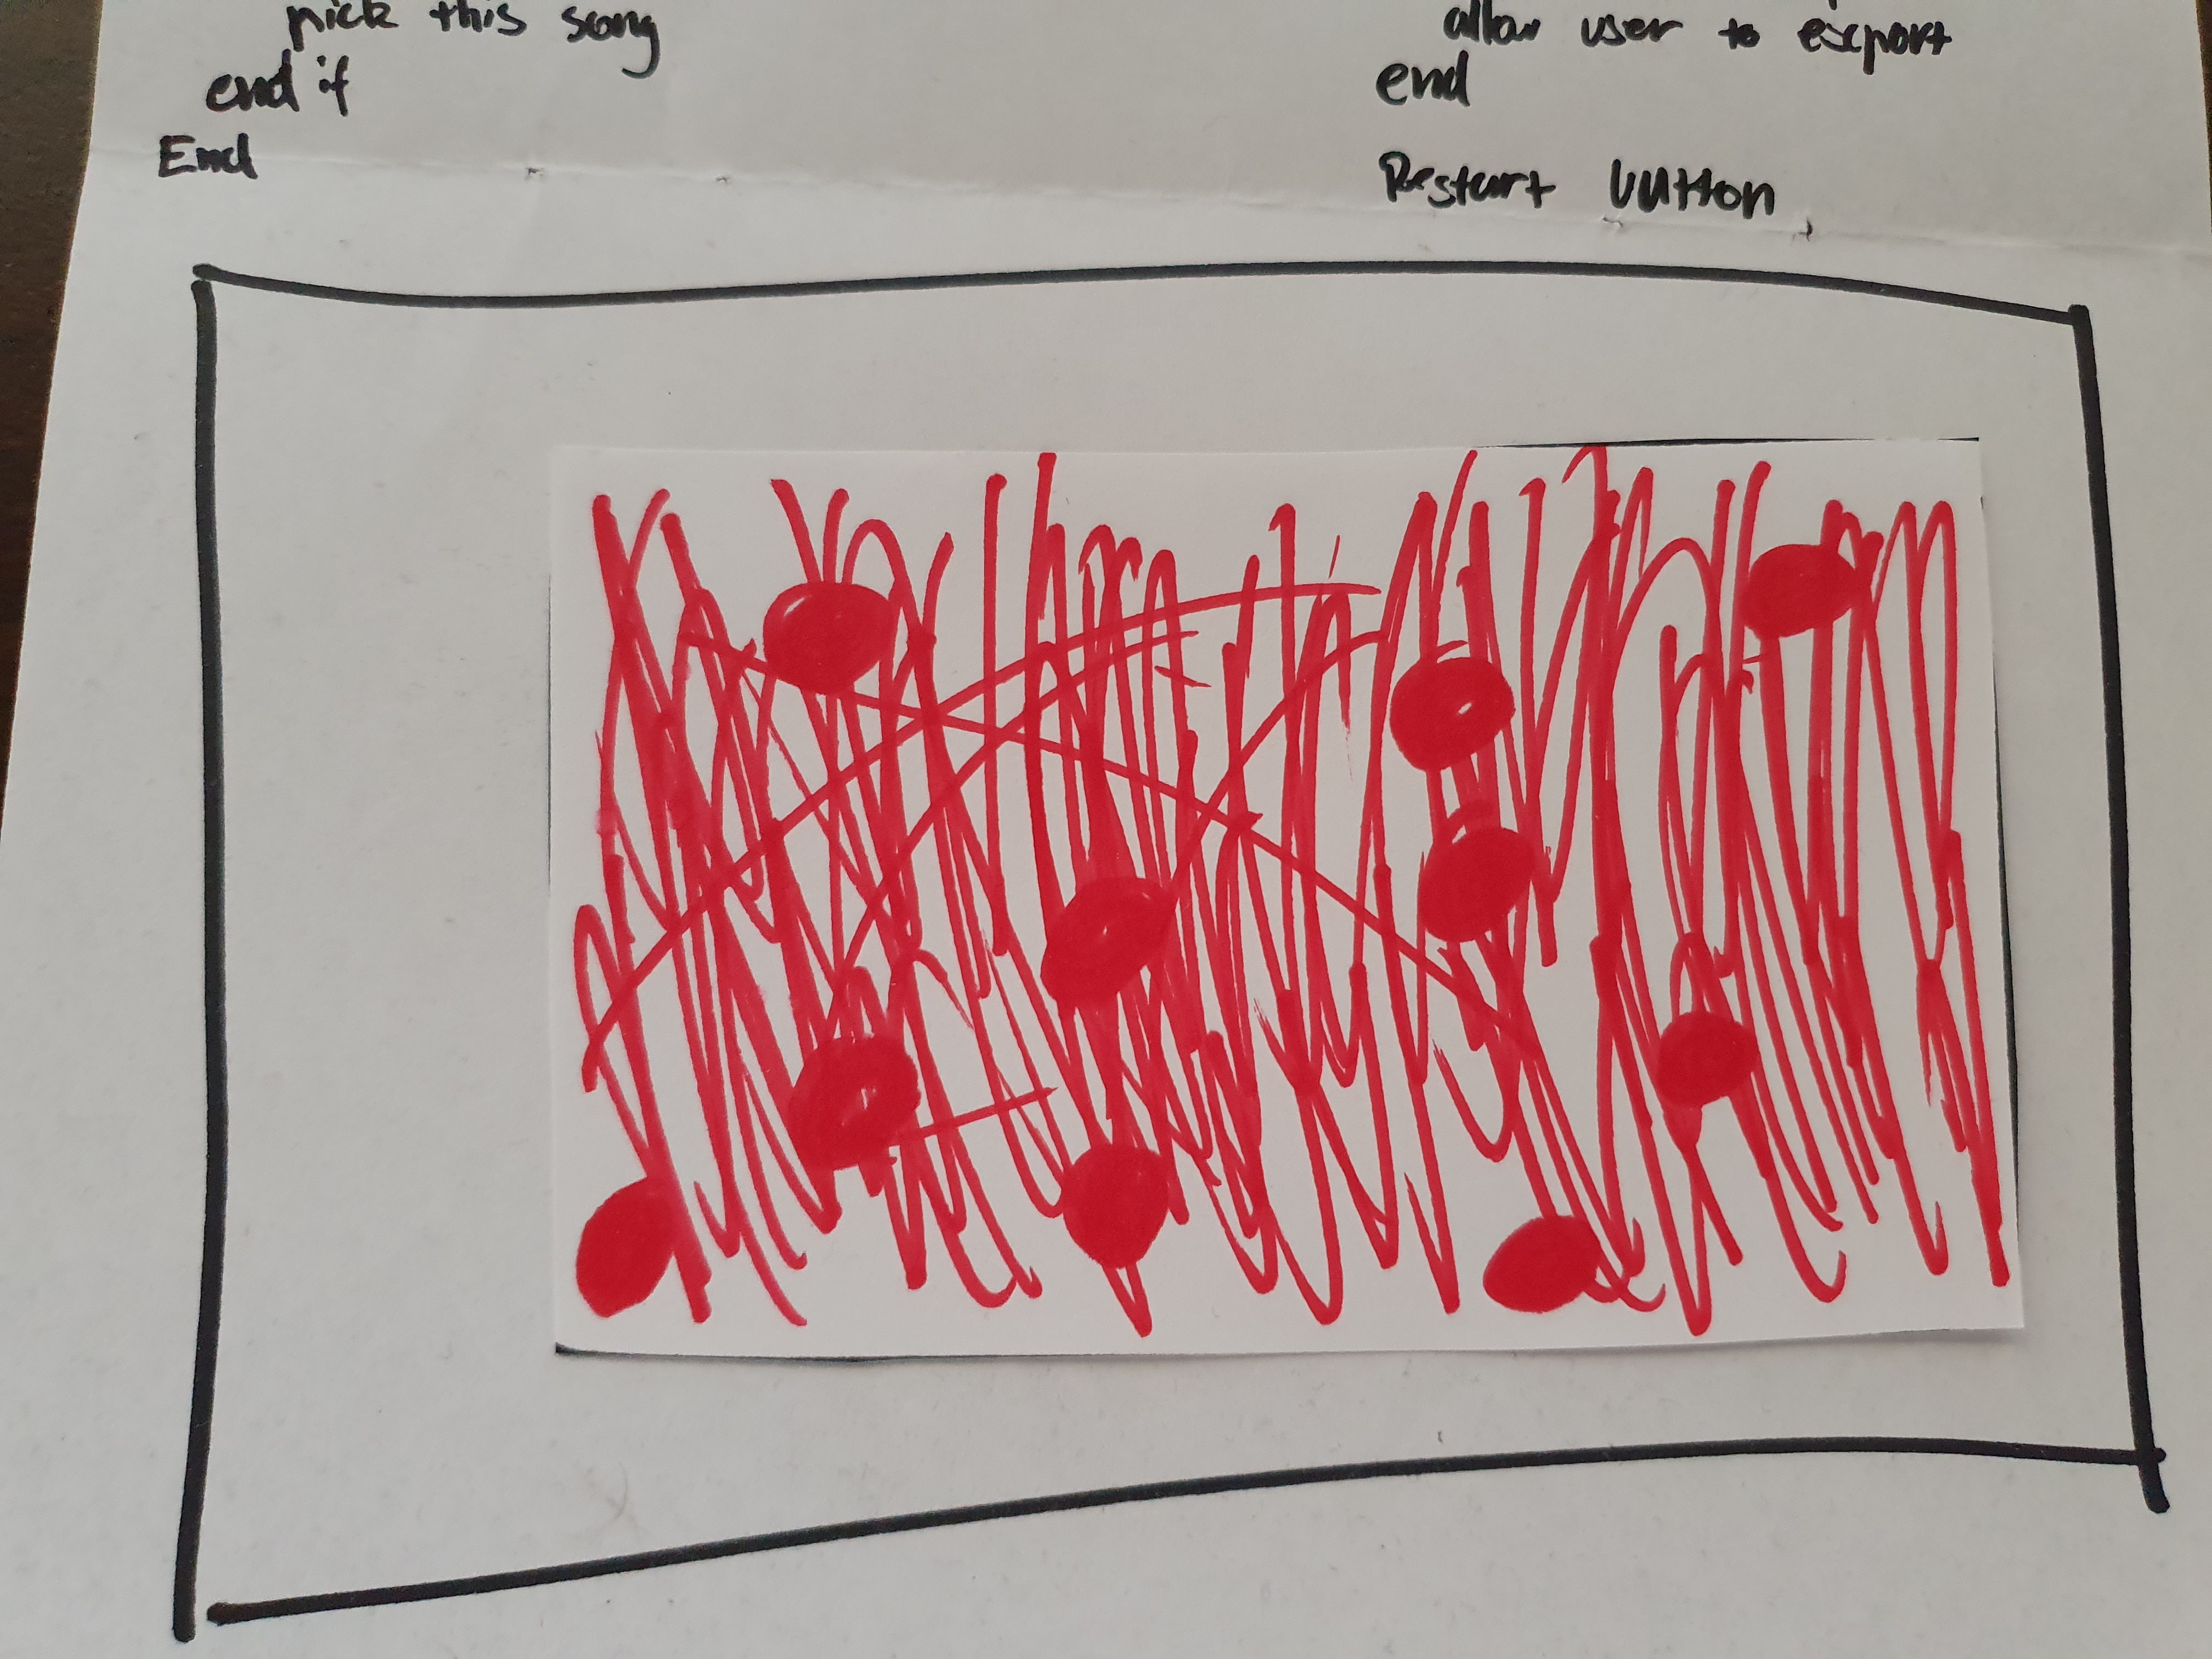 pick this song
end if
End
allow user to export
end
Restart button